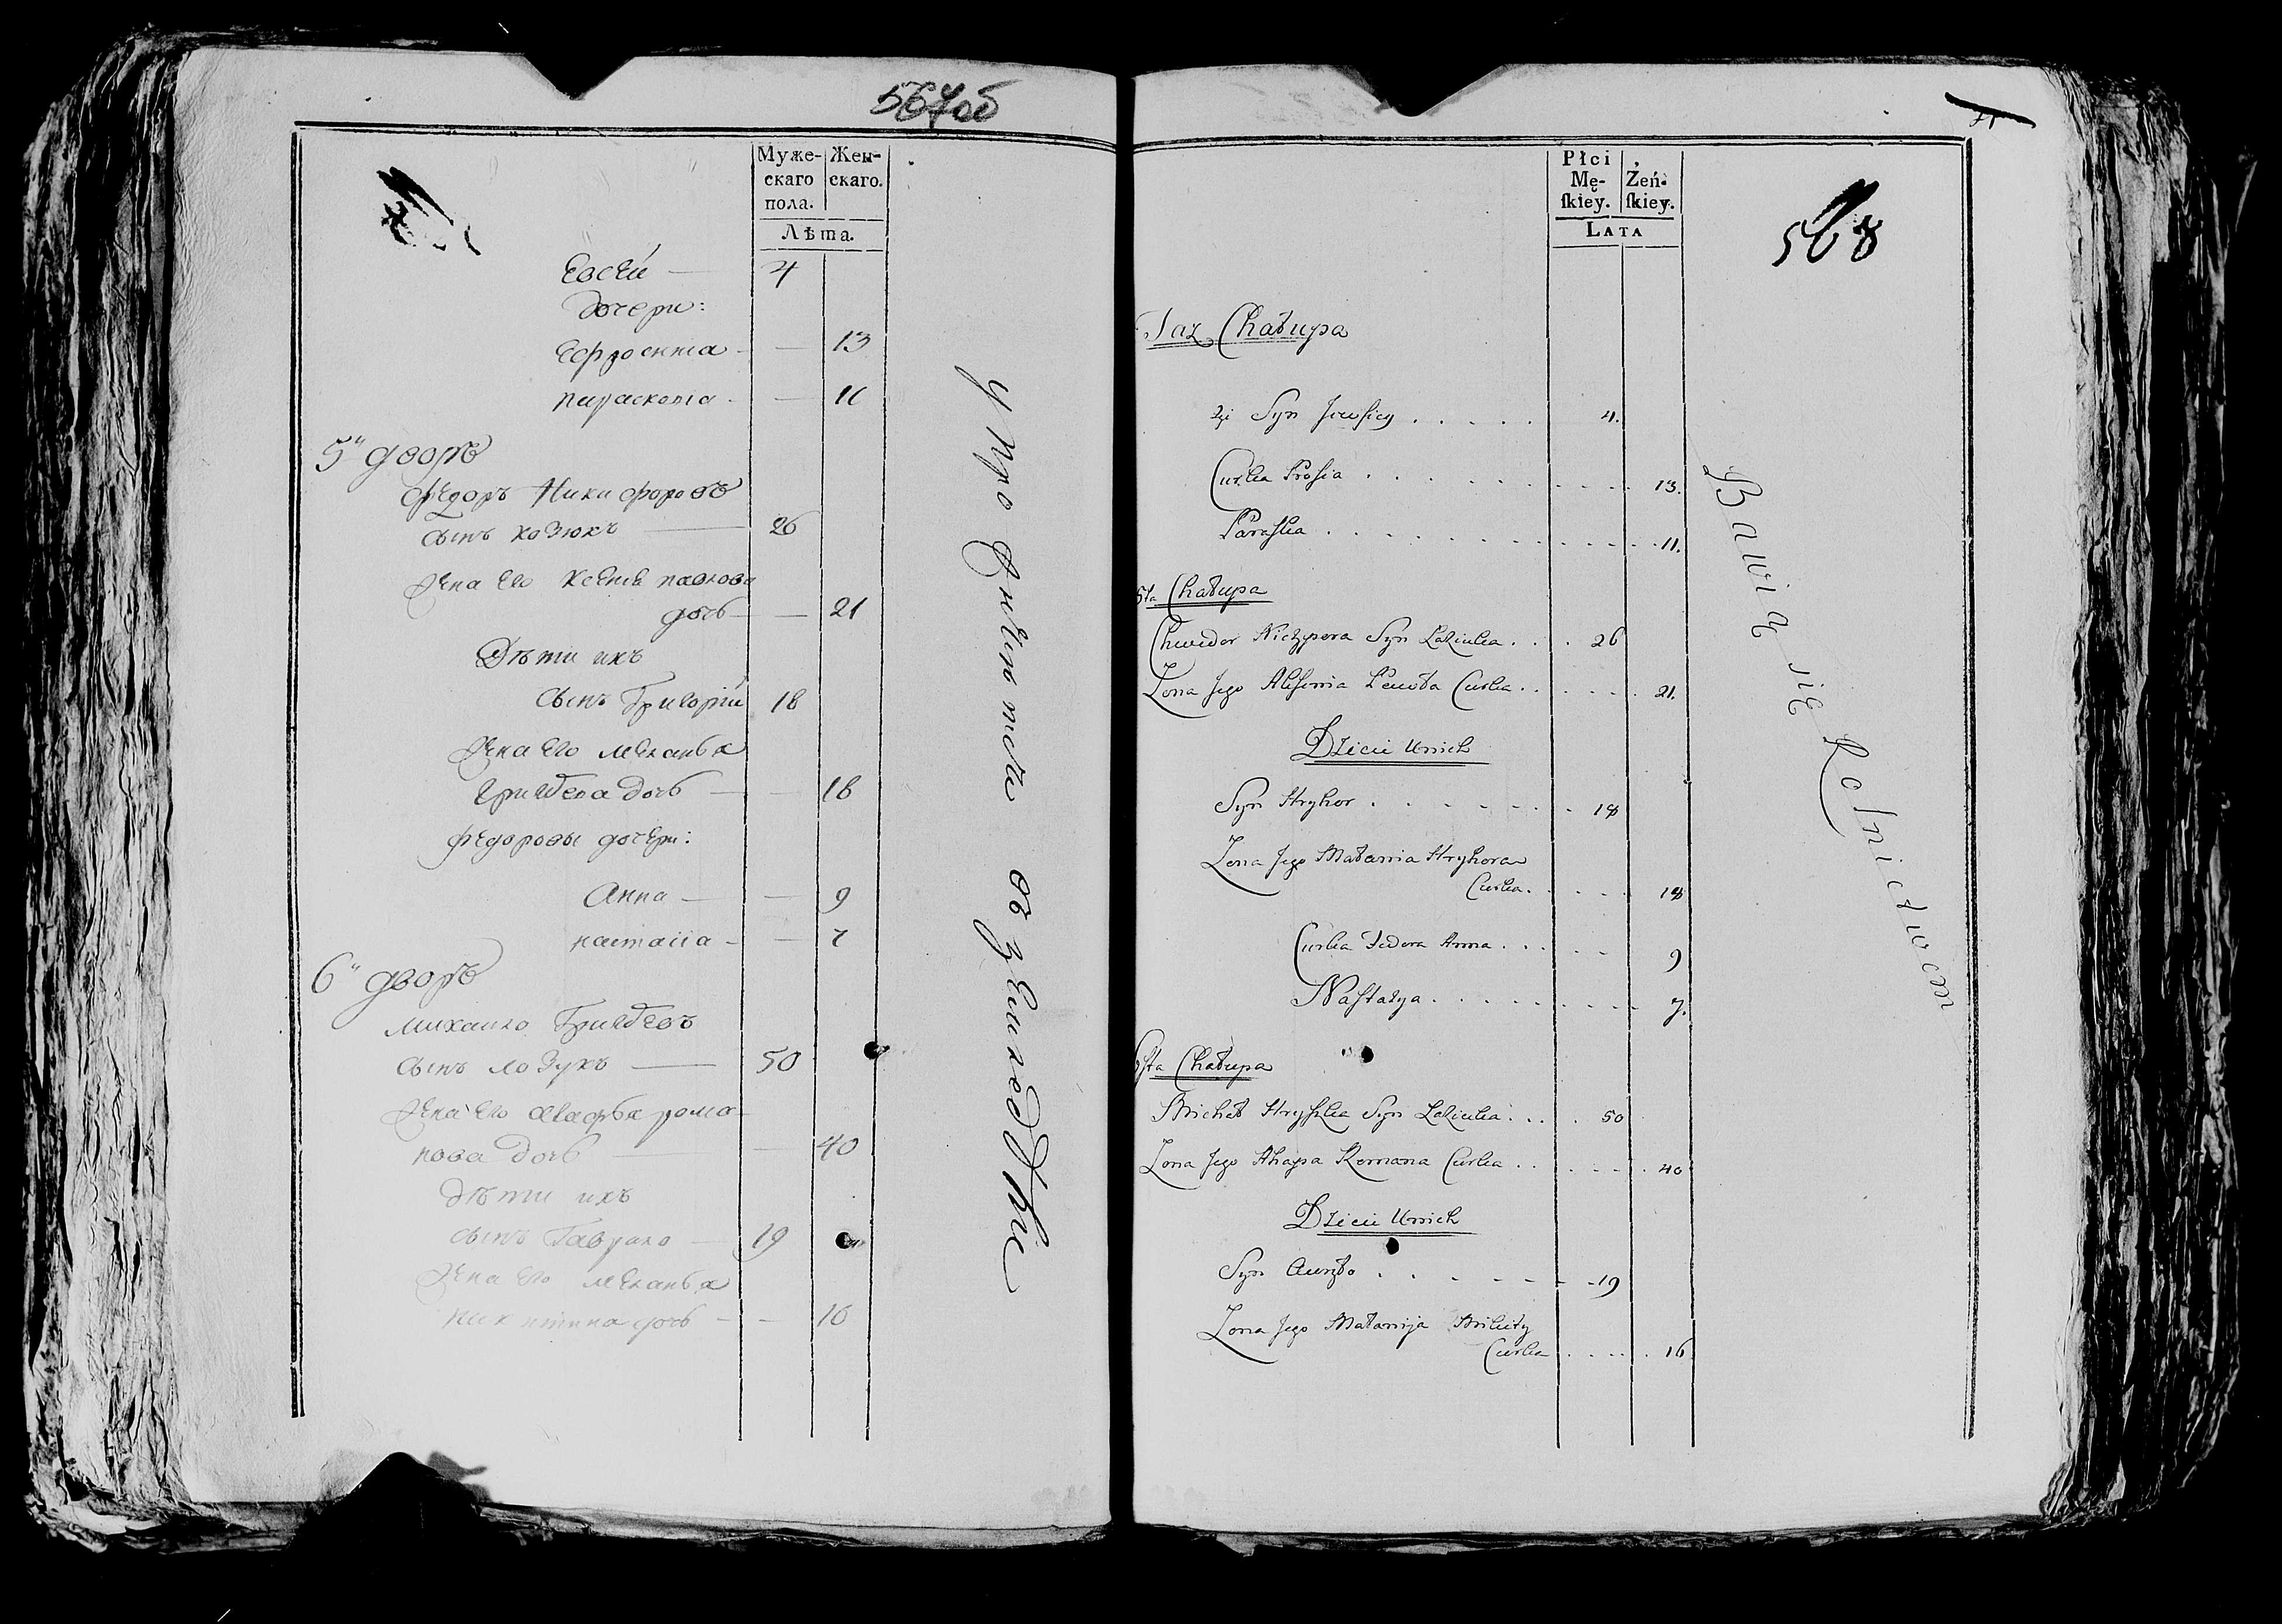 567об
Муже-
скаго
пола.
Жен-
скаго.
Лѣта.
Евсѣй — 4
дочери:
Ефросинia — 13
параскевia — 11
5й дворъ
Федоръ Никифоровъ
сынъ козюкъ — 26
Жена Его Ксенiя павлова
дочь — 21
Дѣти ихъ
сынъ Григорiй 18
Жена Его меланья
Григорьева дочь — 18
федоровы дочери:
Анна — 9
настасiа — 7
6й дворъ
михаило Григорьевъ
сынъ лозукъ — 50
Жена Его агафья рома-
нова дочь — 40
дѣти ихъ
сынъ Гаврило — 19
Жена Его меланья
никитина дочь — 16
упражняются въ земледѣлiе
568
Płci
Mę-
ſkiey.
Żeń-
ſkiey.
LATA
Taż Chałupa
2gi Syn Jewsiey . . . . . 4.
Curka Prosia . . . . . 13.
Paraſka . . . . . 11.
5ta Chałupa
Chwedor Niczypora Syn Koziuka . . . . 26
Zona Jego Aksienia Pawła Curka . . . . . 21.
Dzieci Unich
Syn Hryhor . . . . . 18
Zona Jego Małania Hryhora
Curka . . . . 18
Curka Fedora Anna . . . . . 9
Naſtazya . . . . . 7.
6ſta Chałupa
Michał Hryſzka Syn Łoziuka . . . . 50
Zona Jego Ahapa Romana Curka . . . . . 40
Dzieci Unich
Syn . . . . . 19
Zona Jego Małanija Mikity
Curka . . . . . 16
Bawią się Rolnictwem